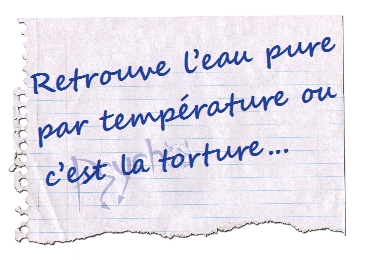 Retrouve l'eau pure
par température ou
c'est la torture...